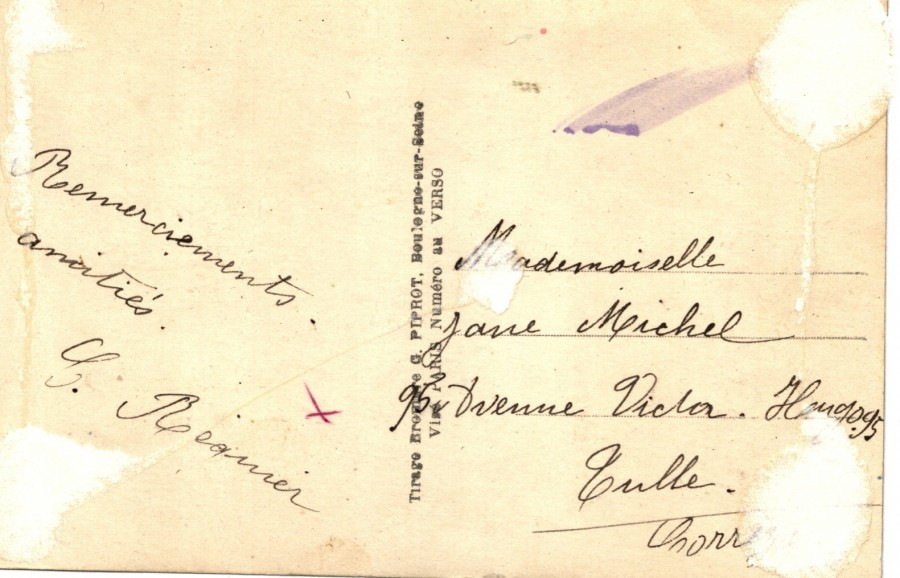 Remerciements.
amitiés.
C. Régnier
Tirage Bromure G. PIPROT, Boulogne-sur-Seine
Visé PARIS Numéro au VERSO
Mademoiselle
Jane Michel
95 Avenue Victor. Hugo 95
Tulle.
Corrè